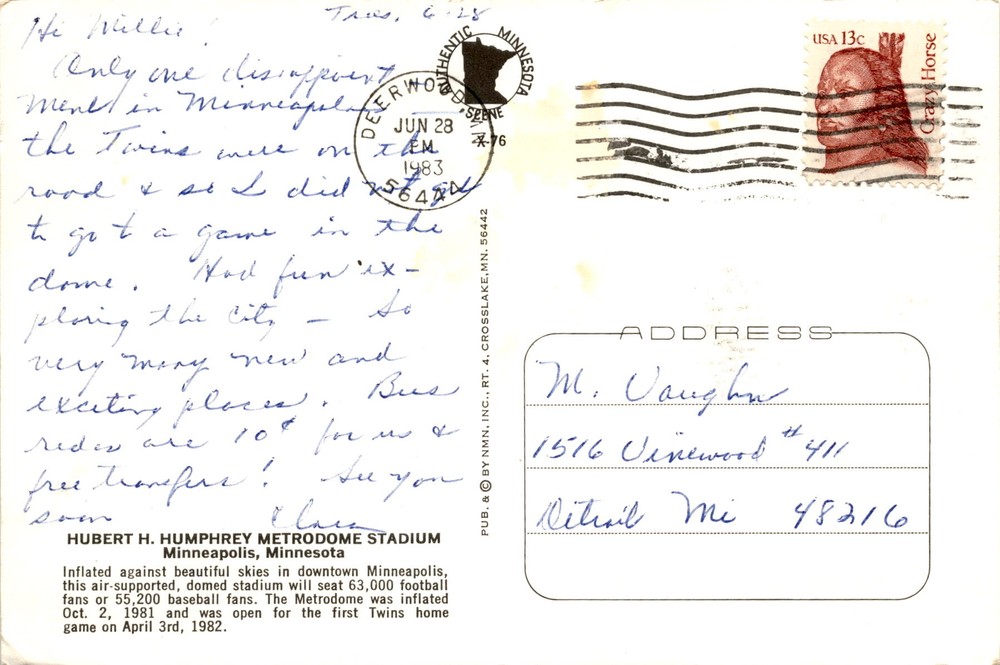 Tues, 6-28
Hi Millie!
Only one disappoint-
ment in Minneapolis —
the Twins were on the
road & so I did not get
to go to a game in the
dome. Had fun ex-
ploring the city — So
very many new and
exciting places. Bus
rides are 10¢ for us &
free transfers! See you
soon Clara
HUBERT H. HUMPHREY METRODOME STADIUM
Minneapolis, Minnesota
Inflated against beautiful skies in downtown Minneapolis,
this air-supported, domed stadium will seat 63,000 football
fans or 55,200 baseball fans. The Metrodome was inflated
Oct. 2, 1981 and was open for the first Twins home
game on April 3rd, 1982.
AUTHENTIC MINNESOTA
SCENE
X-76
DEERWOOD
JUN 28
PM
1983
56444
PUB. & © BY NMN, INC., RT. 4, CROSSLAKE, MN. 56442
USA 13c
Crazy Horse
ADDRESS
M. Vaughn
1516 Vinewood #411
Detroit Mi 48216